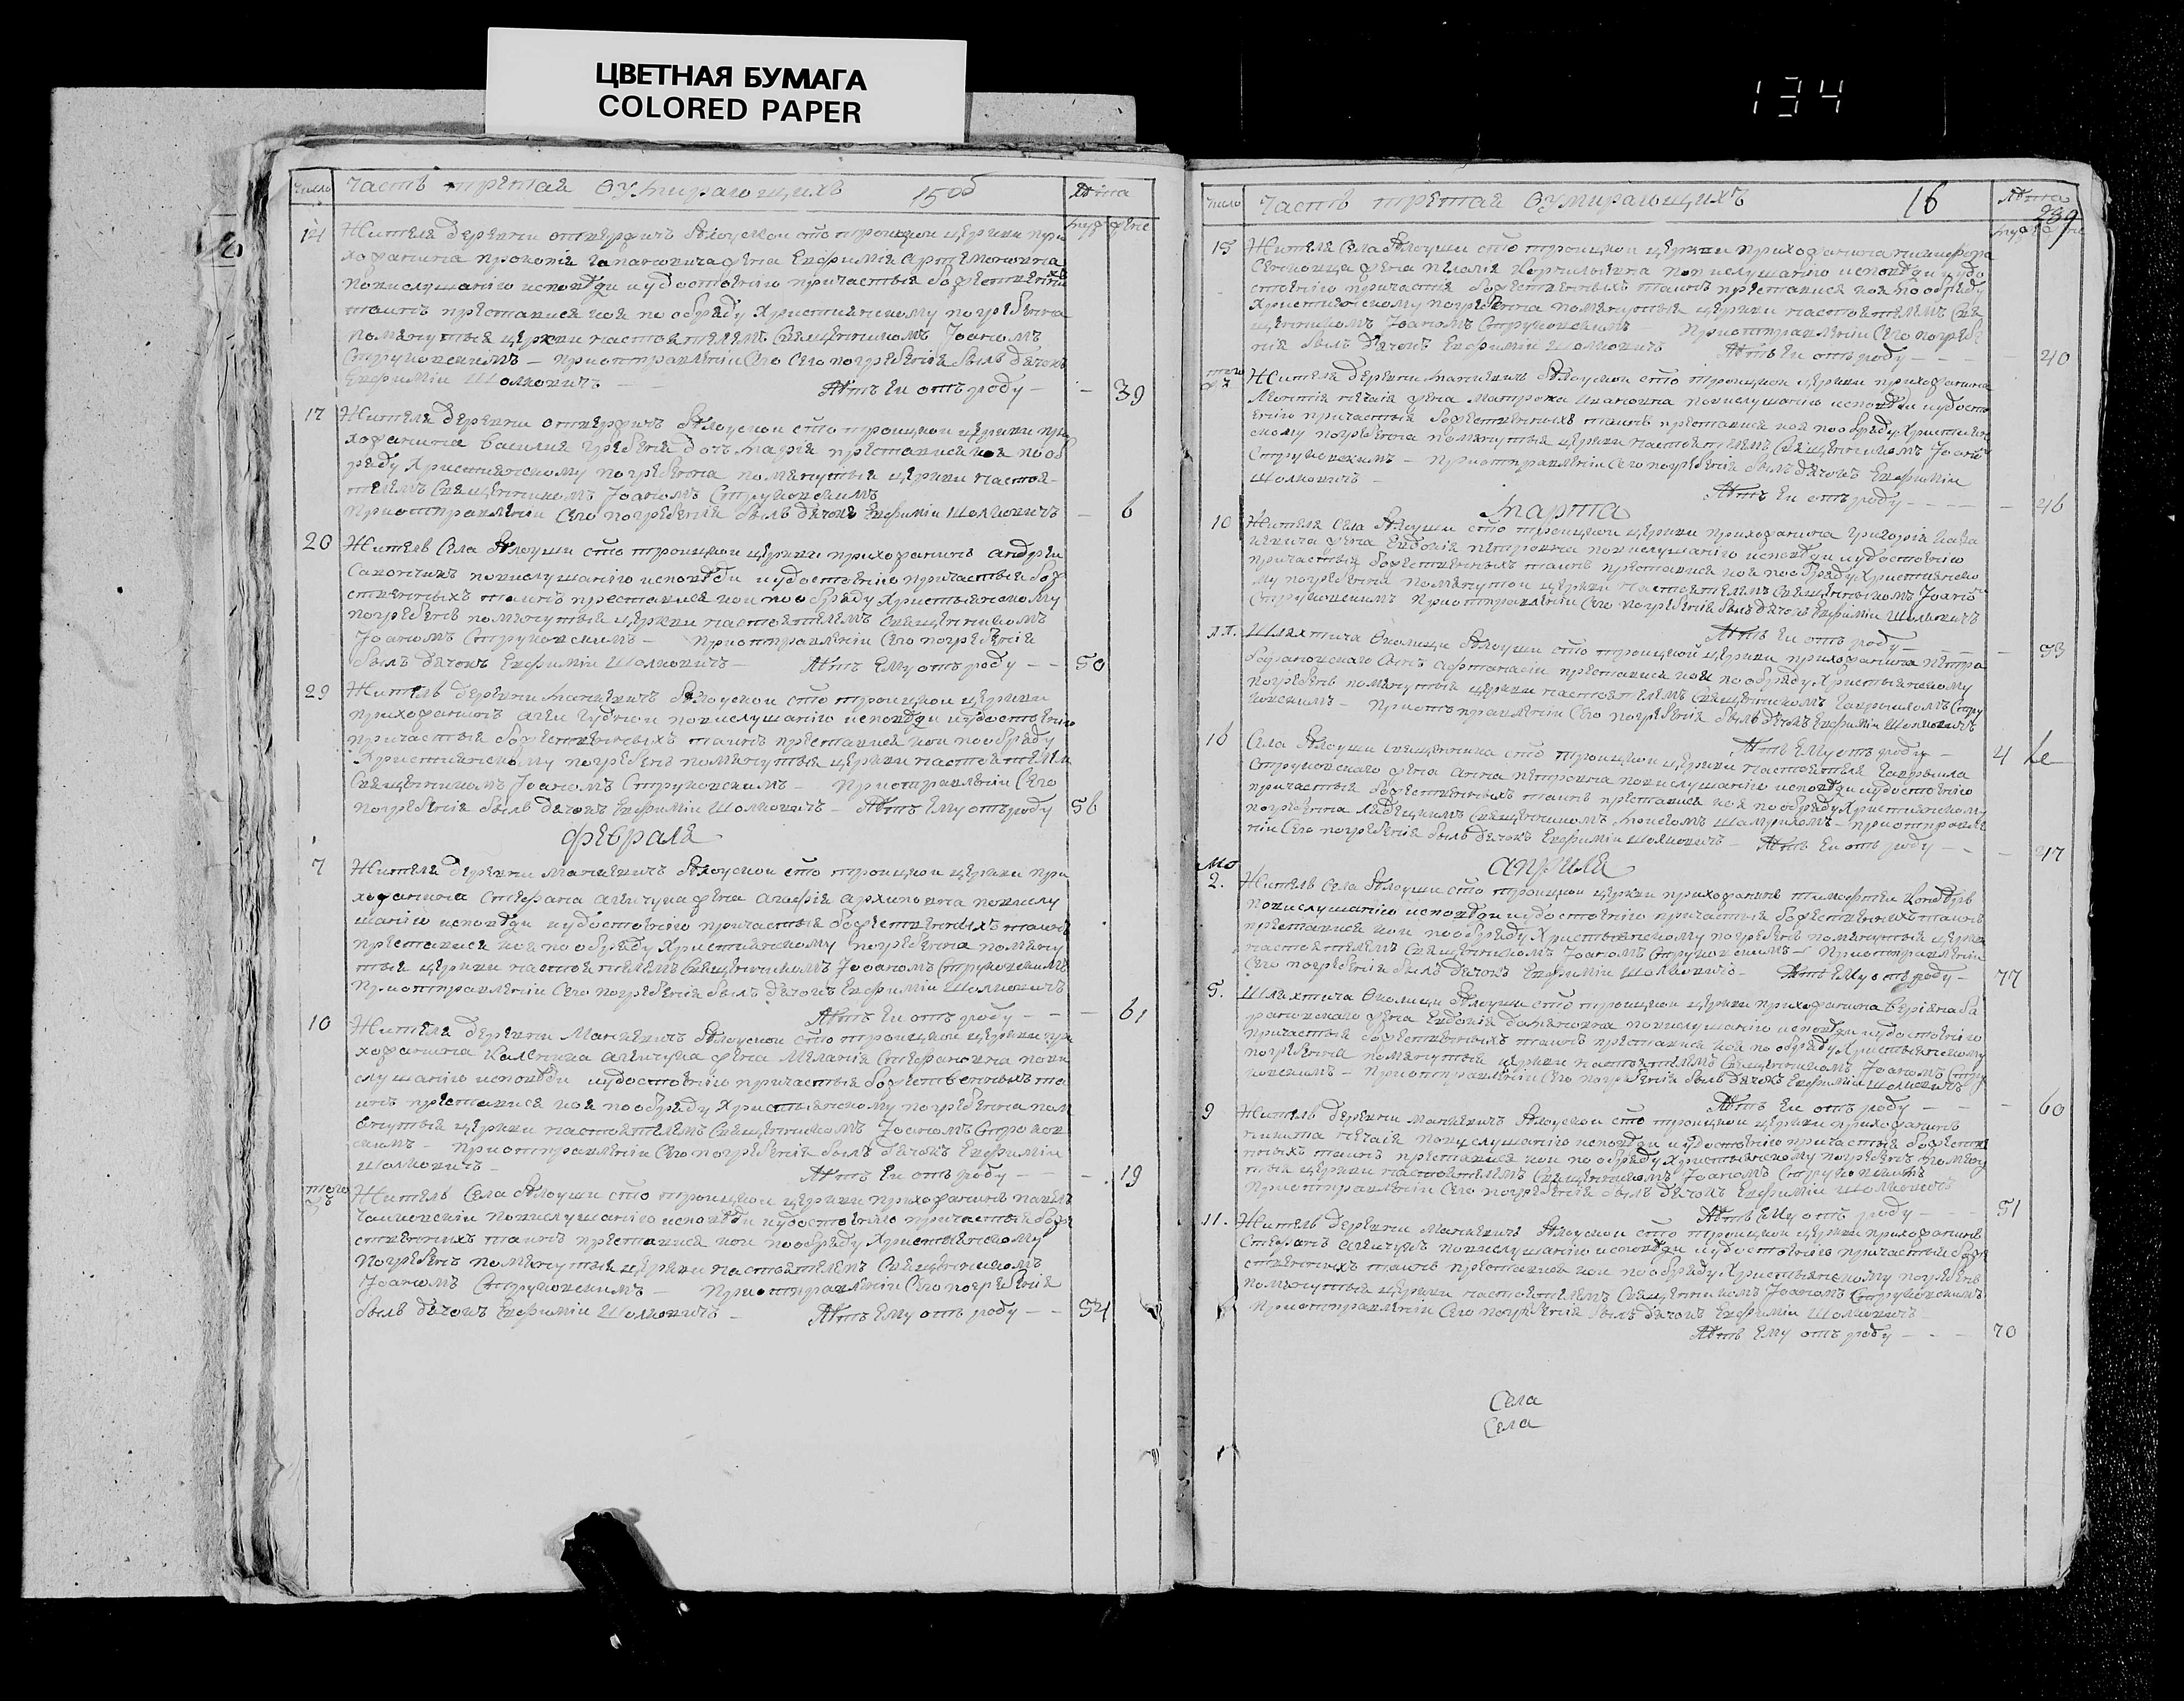 ЦВЕТНАЯ БУМАГА
COLORED PAPER
134
число
Часть третая Оумирающихъ
15 об
Лѣта
муж жене
14
Жителя деревни Бѣлоуской сто троицкой церкви при
хожанина Прокопія жена Евфимія Артемоновна
повислушанію исповѣди иудостоенію причастыя божественних
таинъ преставися коя по обряду Христианскому погребенна
помянутыя церкви настоятелемъ Священникомъ Іоаномъ
Струковскимъ — Приотправленіи Сего Сего погребенія былъ дячокъ
Евфиміи Шолковичъ Лѣтъ Еи отъ роду — — 39
17
Жителя деревни Бѣлоуской сто троицкой церкви при
хожанина Василия дочъ Марія преставися коя по об
ряду Христианскому погребенна помянутыя церкви настоя-
телемъ Священникомъ Іоаномъ Струковскимъ
Приотправленіи Сего погребенія былъ дячокъ Евфиміи Шолковичъ — 6
20
Житель Села Бѣлоуши сто троицкой церкви прихожанинъ Андреи
повислушанію исповѣди иудостоенію причастыя бож
ственныхъ таинъ преставися кои по обряду Христыянскому
погребенъ помянутыя церкви настоятелемъ Священникомъ
Іоаномъ Струковскимъ — Приотправленіи Сего погребенія
былъ дячокъ Евфиміи Шолковичъ — Лѣтъ Ему отъ роду — — 50
29
Житель деревни Манкевичъ Бѣлоуской сто троицкой церкви
прихожанинъ повислушанію исповѣди иудостоенію
причастыя божественныхъ таинъ преставися кои по обряду
Христианскому погребенъ помянутыя церкви настоятелем
Священникомъ Іоаномъ Струковскимъ — Приотправленіи Сего
погребенія былъ дячокъ Евфиміи Шолковичъ — Лѣтъ Ему отъ роду 56
Февраля
7
Жителя деревни Манкевичъ Бѣлоуской сто троицкой церкви при
хожанина Стефана жена Агафія Архиповна повислу
шанію исповѣди иудостоенію причастыя божественныхъ таинъ
преставися коя по обряду Христианскому погребенна помяну
тыя церкви настоятелемъ Священникомъ Іоаномъ Струковскимъ
Приотправленіи Сего погребенія былъ дячокъ Евфиміи Шолковичъ
Лѣтъ Еи отъ роду — — — 61
10
Жителя деревни Манкевичъ Бѣлоуской сто троицкой церкви при
хожанина жена Меланія Стефановна пови
слушанію исповѣди иудостоенію причастыя божественныхъ та
инъ преставися коя по обряду Христыянскому погребенна пом
янутыя церкви настоятелемъ Священникомъ Іоаномъ Струков
скимъ — Приотправленіи Сего погребенія былъ дячокъ Евфиміи
Шолковичъ — Лѣтъ Еи отъ роду — — 19
того
Житель Села Бѣлоуши сто троицкой церкви прихожанинъ Павелъ
повислушанію исповѣди иудостоенію причастыя боже
ственныхъ таинъ преставися кои по обряду Христыянскому
погребенъ помянутыя церкви настоятелемъ Священникомъ
Іоаномъ Струковскимъ — Приотправленіи Сего погребенія
былъ дячокъ Евфиміи Шолковичъ — Лѣтъ Ему отъ роду — — 54
число
Часть третая Оумирающихъ
16
Лѣта
239
15
Жителя Села Бѣлоуши сто троицкой церкви прихожанина
жена повислушанію исповѣди иудо
стоенію причастія божественныхъ таинъ преставися коя по обряду
Христианскому погребенна помянутыя церкви настоятелемъ Свя
щенникомъ Іоаномъ Струковскимъ — Приотправленіи Сего погребе
нія былъ дячокъ Евфиміи Шолковичъ Лѣтъ Еи отъ роду — — — 40
того
Жителя деревни Манкевичъ Бѣлоуской сто троицкой церкви прихожанина
жена Матрона Ивановна повислушанію исповѣди иудосто
енію причастыя божественныхъ таинъ преставися коя по обряду Християн
скому погребенна помянутыя церкви настоятелемъ Священникомъ Іоаномъ
Струковскимъ — Приотправленіи Сего погребенія былъ дячокъ Евфиміи
Шолковичъ — Лѣтъ Еи отъ роду — — — — 46
Марта
10
Жителя Села Бѣлоуши сто троицкой церкви прихожанина Григорія
жена Евдокія Петровна повислушанію исповѣди иудостоенію
причастыя божественныхъ таинъ преставися коя по обряду Христианско
му погребенна помянутой церкви настоятелемъ Священникомъ Іоаномъ
Струковскимъ Приотправленіи Сего погребенія былъ дячокъ Евфиміи Шолковичъ
Лѣтъ Еи отъ роду — — — 93
Шляхтича Околици Бѣлоуши сто троицкой церкви прихожанина Петра
Афанасіи преставися кои по обряду Христыянскому
погребенъ помянутыя церкви настоятелемъ Священникомъ Гаврыиломъ Стру
ковскимъ — Приотправленіи Сего погребенія былъ дячокъ Евфиміи Шолковичъ
Лѣтъ Ему отъ роду — 4
16
Села Бѣлоуши Священника сто троицкой церкви настоятеля Гаврыила
Струковскаго жена Анна Петровна повислушанію исповѣди иудостоенію
причастыя божественныхъ таинъ преставися коя по обряду Христианскому
погребенна Священникомъ — Приотправле
ніи Сего погребенія былъ дячокъ Евфиміи Шолковичъ — Лѣтъ Еи отъ роду — — 47
Априля
2.
Житель Села Бѣлоуши сто троицкой церкви прихожанинъ Тимофтеи
повислушанію исповѣди иудостоенію причастыя божественныхъ таинъ
преставися кои по обряду Христыянскому погребенъ помянутыя церкви
настоятелемъ Священникомъ Іоаномъ Струковскимъ — Приотправленіи
Сего погребенія былъ дячокъ Евфиміи Шолковичъ — Лѣтъ Ему отъ роду — 77
5.
Шляхтича Околици Бѣлоуши сто троицкой церкви прихожанина
жена Евдокія повислушанію исповѣди иудостоенію
причастыя божественныхъ таинъ преставися коя по обряду Христыянскому
погребенна помянутыя церкви настоятелемъ Священникомъ Іоаномъ Стру
ковскимъ — Приотправленіи Сего погребенія былъ дячокъ Евфиміи Шолковичъ
Лѣтъ Еи отъ роду — — — 60
9
Житель деревни Манкевичъ Бѣлоуской сто троицкой церкви прихожанинъ
Никита повислушанію исповѣди иудостоенію причастыя божестве
нныхъ таинъ преставися кои по обряду Христыянскому погребенъ помяну
тыя церкви настоятелемъ Священникомъ Іоаномъ Струковскимъ
Приотправленіи Сего погребенія былъ дячокъ Евфиміи Шолковичъ
Лѣтъ Ему отъ роду — — 51
11.
Житель деревни Манкевичъ Бѣлоуской сто троицкой церкви прихожанинъ
Стефанъ повислушанію исповѣди иудостоенію причастыя боже
ственныхъ таинъ преставися кои по обряду Христыянскому погребенъ
помянутыя церкви настоятелемъ Священникомъ Іоаномъ Струковскимъ
Приотправленіи Сего погребенія былъ дячокъ Евфиміи Шолковичъ
Лѣтъ Ему отъ роду — — — 70
Села
Села